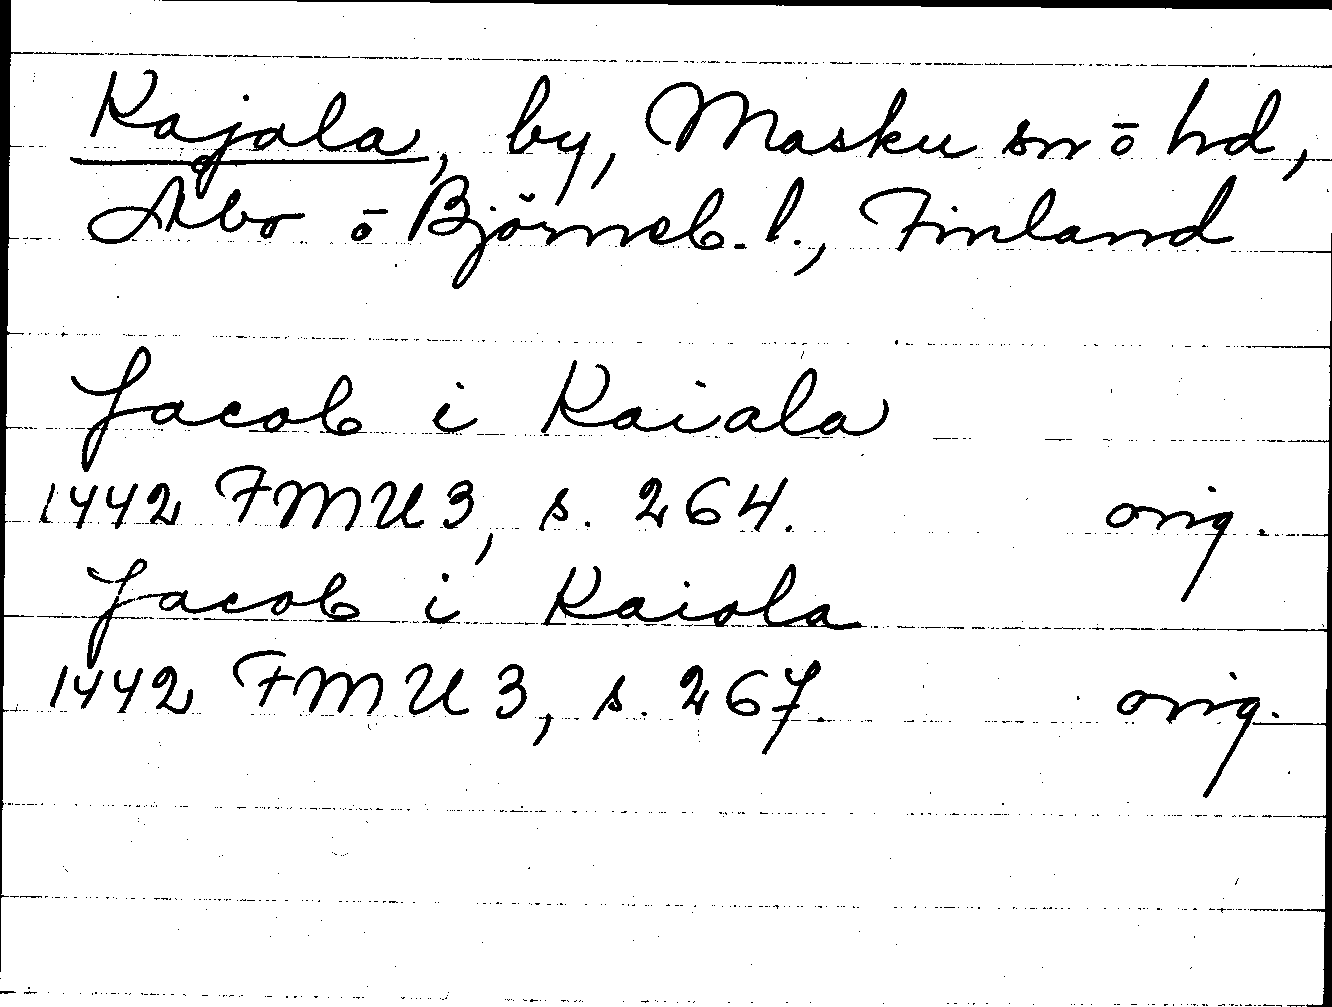 Kajala, by, Masku sn ō hd,
Åbo ō Björneb. l., Finland
Jacob i Kaiala
1442 FMU 3, s. 264. orig.
Jacob i Kaiola
1442 FMU 3, s. 267. orig.